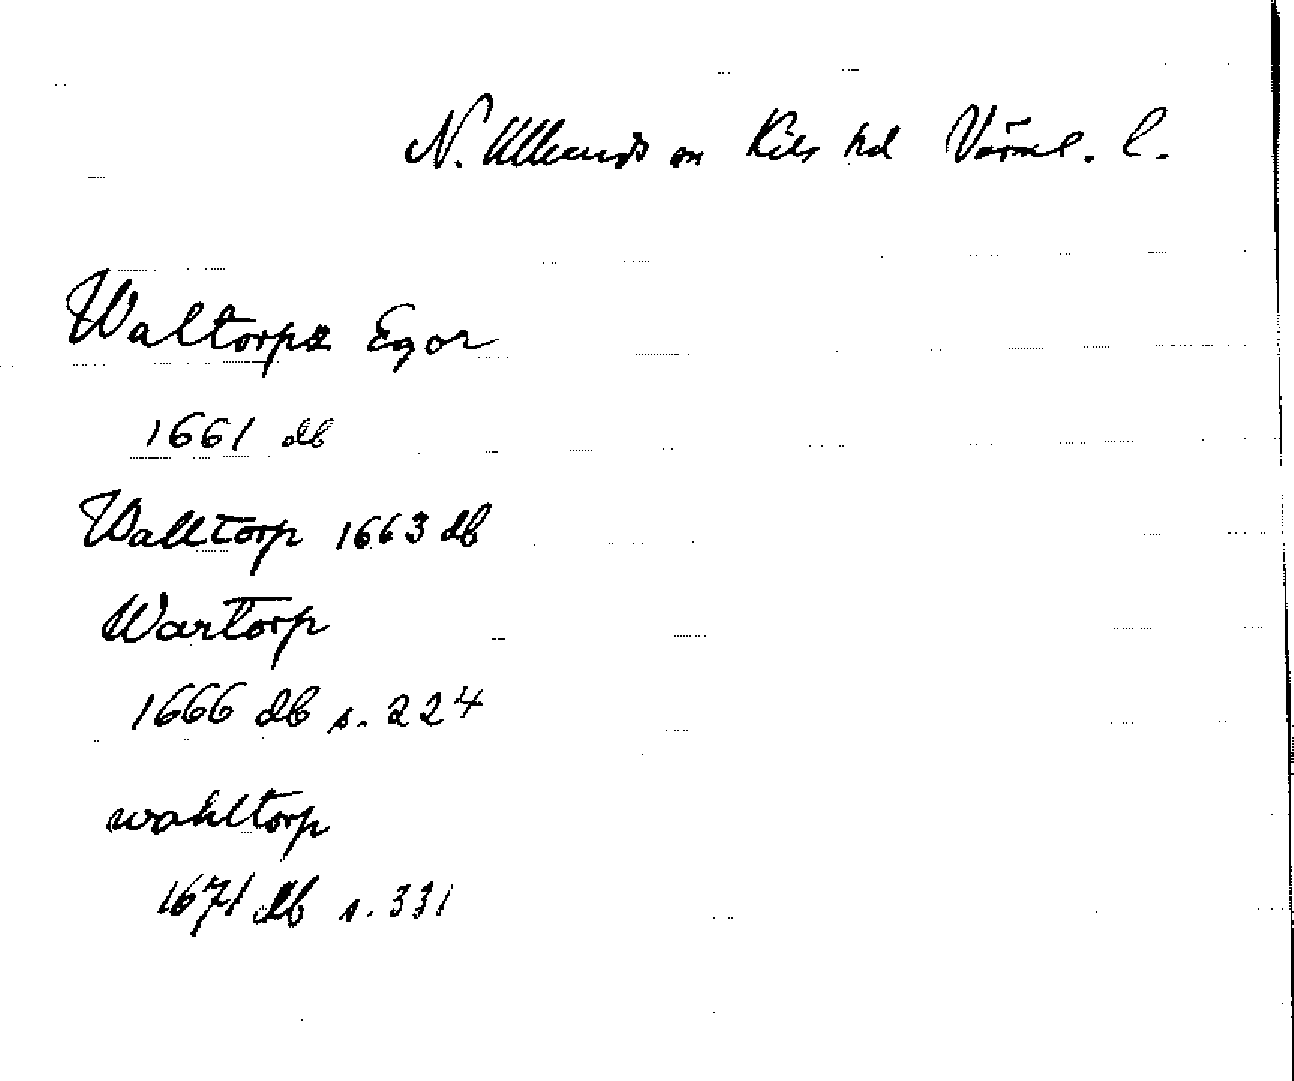 N. Ulleruds sn Kils hd Värml. l.
Waltorps Egor
1661 db
Walltorp 1663 db
Wartorp
1666 db s. 224
wahltorp
1671 db s. 331